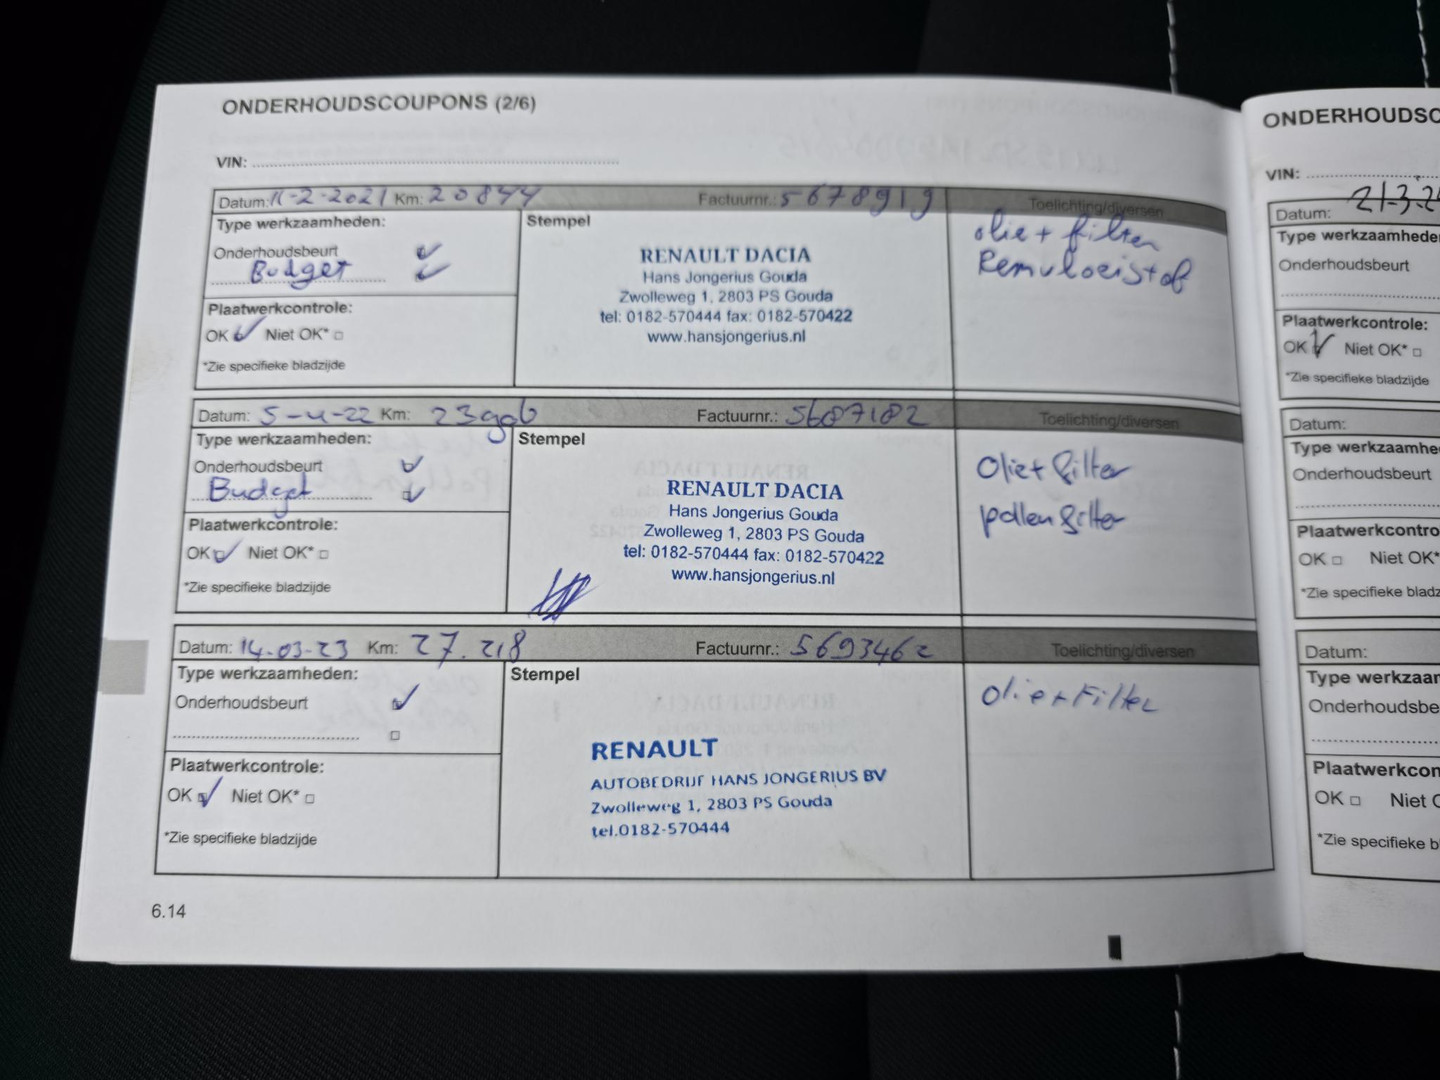 ONDERHOUDSCOUPONS (2/6)
VIN:
Datum: 11-2-2021 Km: 20844 Factuurnr.: 5678919 Toelichting/diversen
Type werkzaamheden:
Stempel
Onderhoudsbeurt
Budget
Plaatwerkcontrole:
OK Niet OK*
*Zie specifieke bladzijde
RENAULT DACIA
Hans Jongerius Gouda
Zwolleweg 1, 2803 PS Gouda
tel: 0182-570444 fax: 0182-570422
www.hansjongerius.nl
olie + filter
Remvloeistof
Datum: 5-4-22 Km: Factuurnr.: 5687182 Toelichting/diversen
Type werkzaamheden:
Stempel
Onderhoudsbeurt
Budget
Plaatwerkcontrole:
OK Niet OK*
*Zie specifieke bladzijde
RENAULT DACIA
Hans Jongerius Gouda
Zwolleweg 1, 2803 PS Gouda
tel: 0182-570444 fax: 0182-570422
www.hansjongerius.nl
Olie + filter
pollenfilter
Datum: 14-03-23 Km: 27.218 Factuurnr.: 5693462 Toelichting/diversen
Type werkzaamheden:
Stempel
Onderhoudsbeurt
Plaatwerkcontrole:
OK Niet OK*
*Zie specifieke bladzijde
RENAULT
AUTOBEDRIJF HANS JONGERIUS BV
Zwolleweg 1, 2803 PS Gouda
tel.0182-570444
olie + Filter
6.14
ONDERHOUDSC
VIN:
Datum: 21-3-2
Type werkzaamhede
Onderhoudsbeurt
Plaatwerkcontrole:
OK Niet OK*
*Zie specifieke bladzijde
Datum:
Type werkzaamhe
Onderhoudsbeurt
Plaatwerkcontro
OK Niet OK*
*Zie specifieke bladz
Datum:
Type werkzaar
Onderhoudsbe
Plaatwerkcon
OK Niet O
*Zie specifieke b